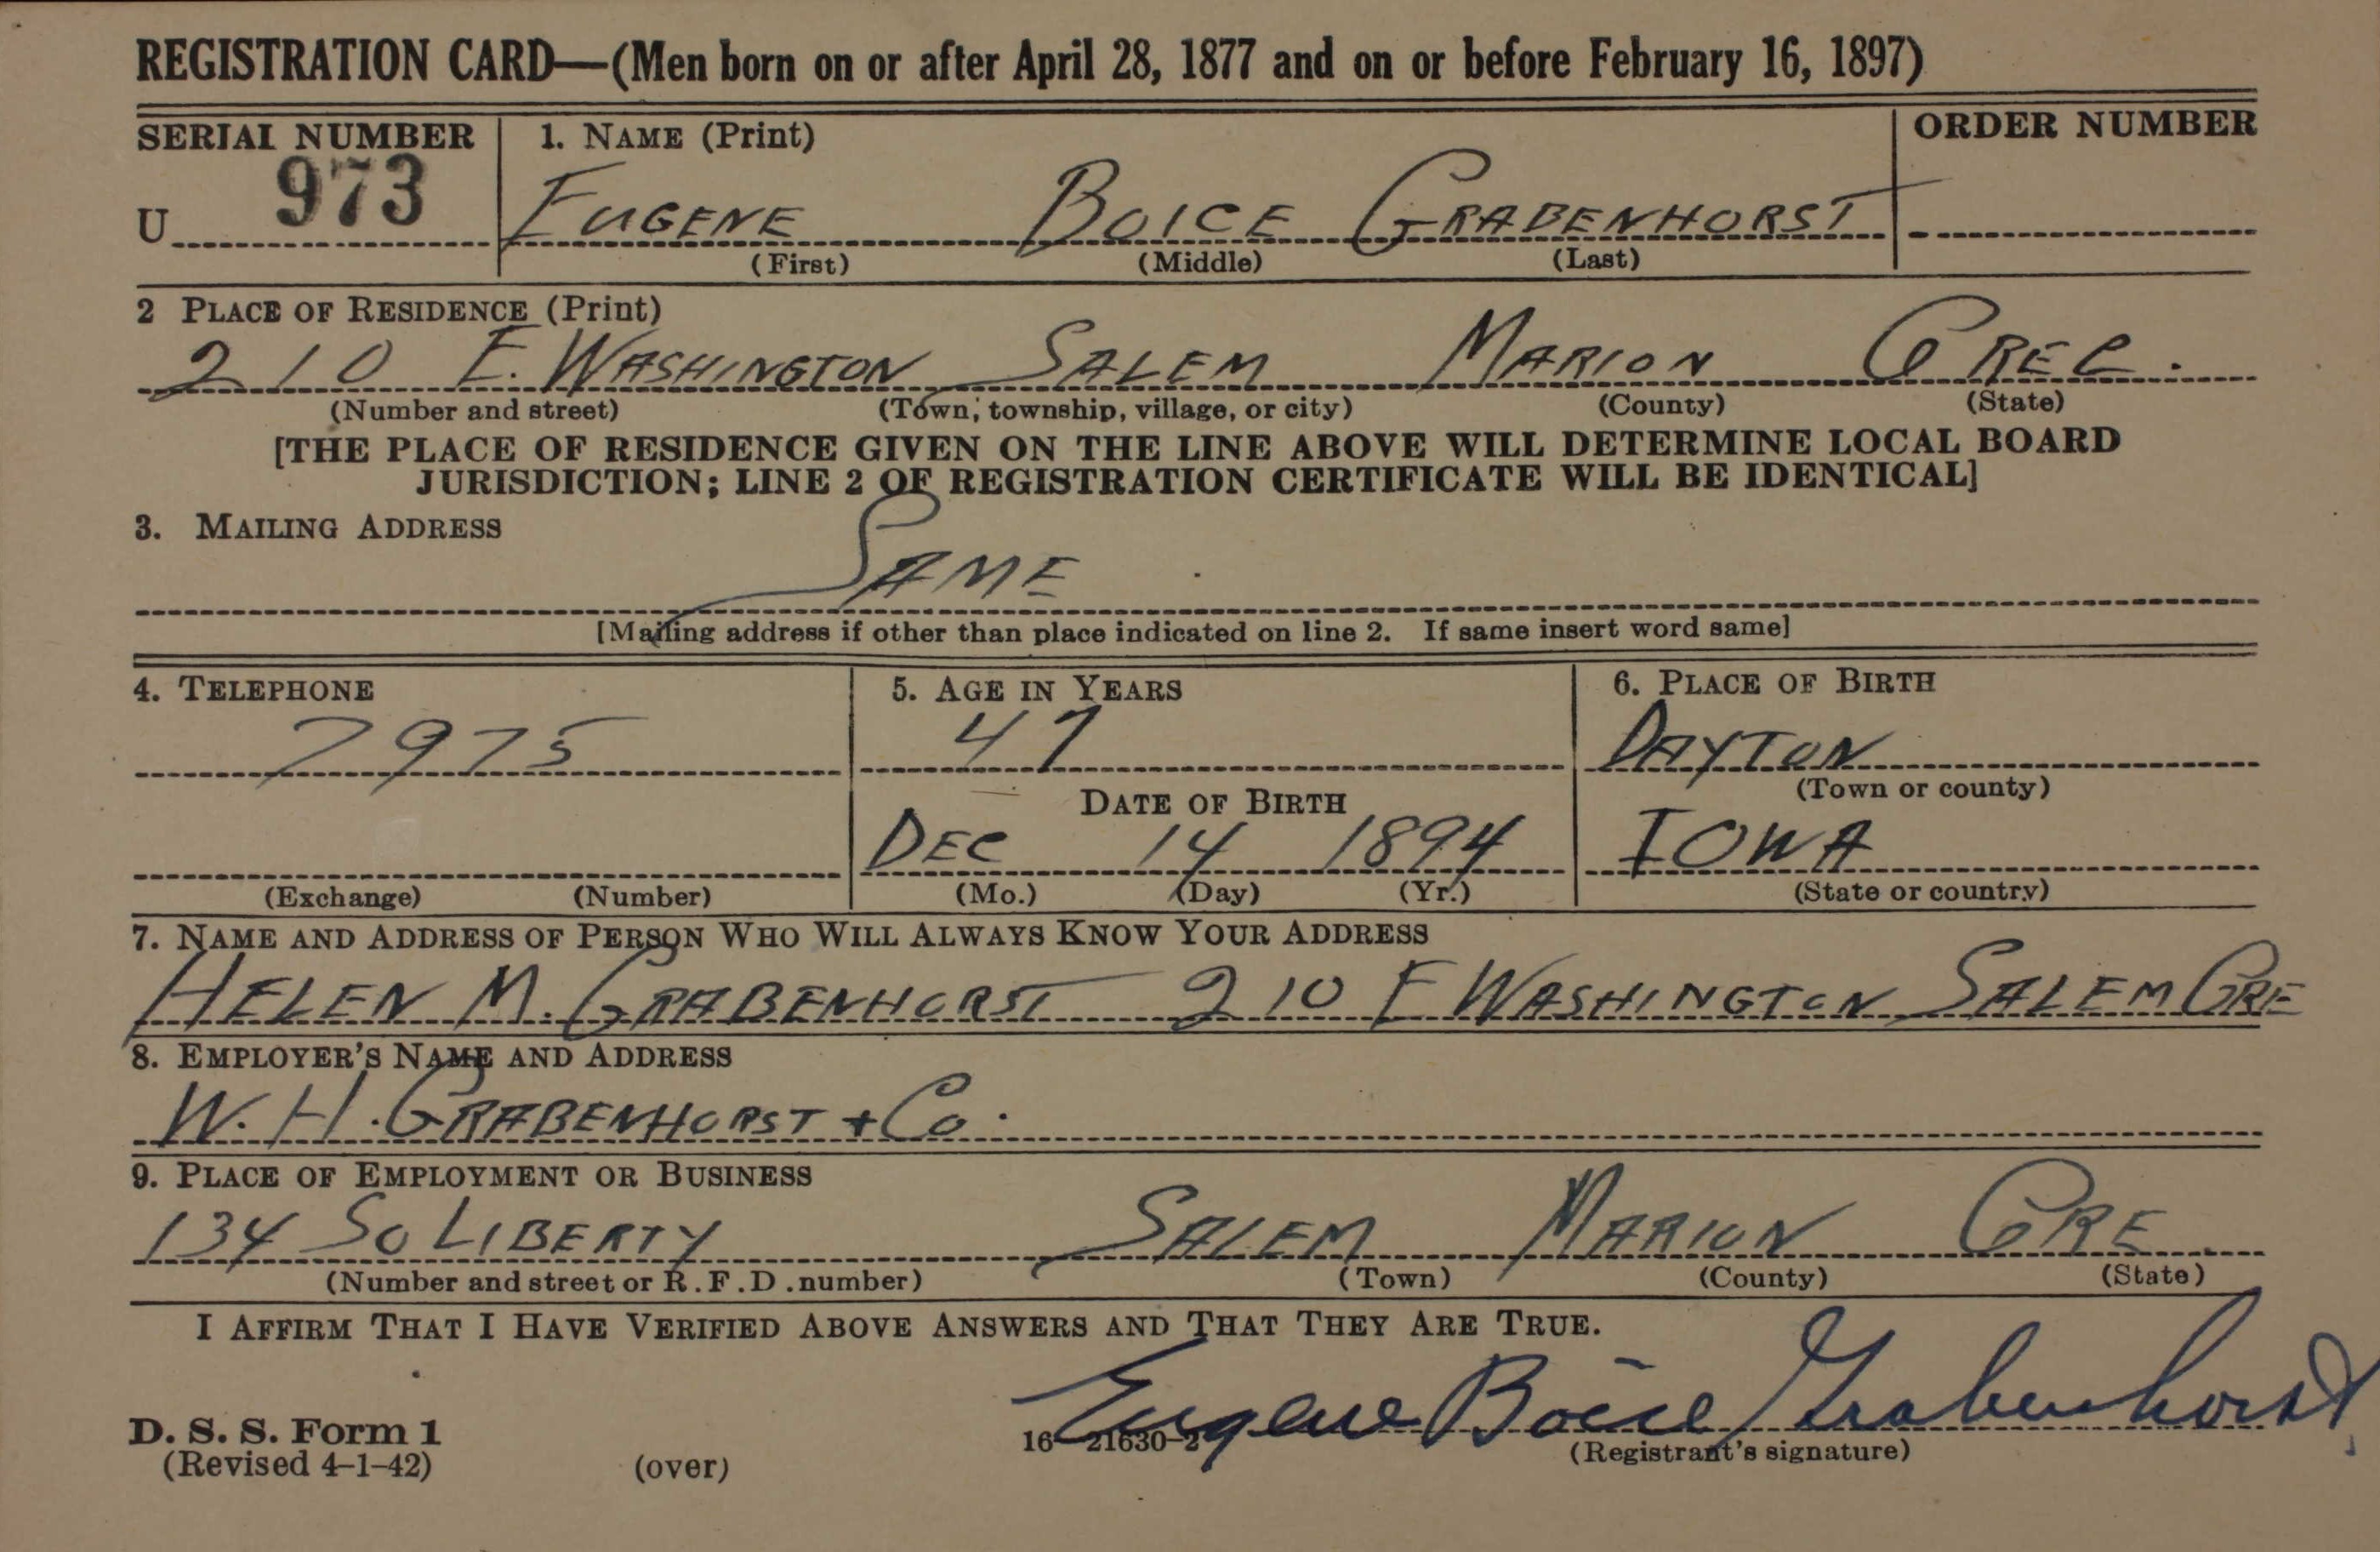 REGISTRATION CARD—(Men born on or after April 28, 1877 and on or before February 16, 1897)
SERIAL NUMBER 1. NAME (Print) ORDER NUMBER
U 973 EUGENE BOICE GRABENHORST
(First) (Middle) (Last)
2 PLACE OF RESIDENCE (Print)
210 E. WASHINGTON SALEM MARION OREG.
(Number and street) (Town, township, village, or city) (County) (State)
[THE PLACE OF RESIDENCE GIVEN ON THE LINE ABOVE WILL DETERMINE LOCAL BOARD
JURISDICTION; LINE 2 OF REGISTRATION CERTIFICATE WILL BE IDENTICAL]
3. MAILING ADDRESS
SAME
[Mailing address if other than place indicated on line 2. If same insert word same]
4. TELEPHONE 5. AGE IN YEARS 6. PLACE OF BIRTH
7975 47 DAYTON
(Town or county)
DATE OF BIRTH
DEC 14 1894 IOWA
(Exchange) (Number) (Mo.) (Day) (Yr.) (State or country)
7. NAME AND ADDRESS OF PERSON WHO WILL ALWAYS KNOW YOUR ADDRESS
HELEN M. GRABENHORST 210 E WASHINGTON SALEM ORE
8. EMPLOYER'S NAME AND ADDRESS
W. H. GRABENHORST + Co.
9. PLACE OF EMPLOYMENT OR BUSINESS
134 SO LIBERTY SALEM MARION ORE
(Number and street or R.F.D. number) (Town) (County) (State)
I AFFIRM THAT I HAVE VERIFIED ABOVE ANSWERS AND THAT THEY ARE TRUE.
Eugene Boice Grabenhorst
D. S. S. Form 1 16—21630-2 (Registrant's signature)
(Revised 4-1-42) (over)